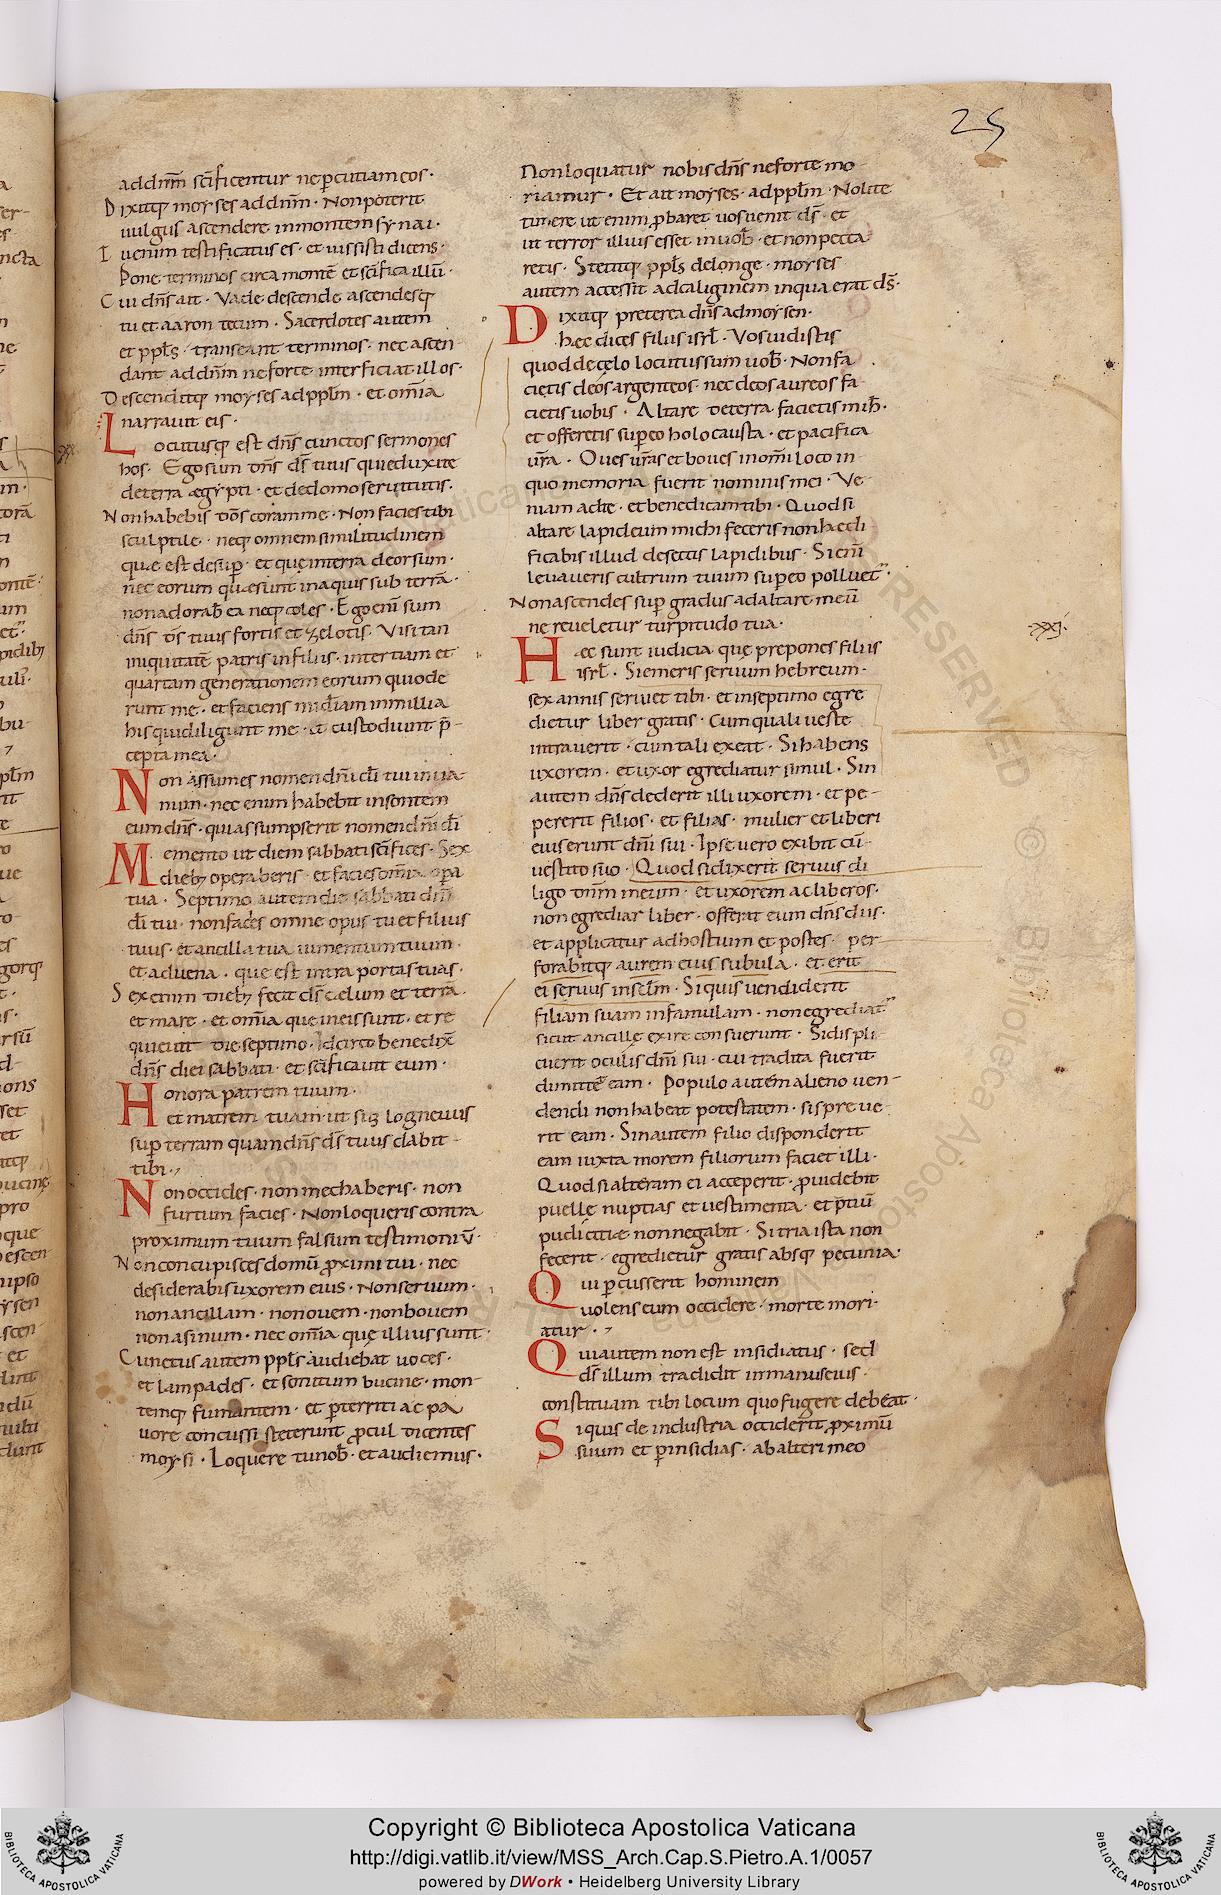 25
ad dn̄m sc̄ificentur ne ꝑcutiam eos ·
Dixitq; moyses ad dn̄m · Non poterit
uulgus ascendere in montem synai ·
Tu enim testificatus es · et iussisti dicens ·
Pone terminos circa montē et sc̄ifica illū ·
Cui dn̄s ait · Vade descende ascendesq;
tu et aaron tecum · Sacerdotes autem
et ppl̄s · transeant terminos · nec ascen
dant ad dn̄m ne forte interficiat illos ·
Descenditq; moyses ad ppl̄m · et om̄ia
narrauit eis ·
Locutusq; est dn̄s cunctos sermones
hos · Ego sum dn̄s ds̄ tuus qui eduxi te
de terra ægypti · et de domo seruitutis ·
Non habebis dōs coram me · Non facies tibi
sculptile · neq; omnem similitudinem
quæ est desuꝑ · et que in terra deorsum ·
nec eorum quæ sunt in aquis sub terra ·
non adorab̄ ea neq; coles · Ego eni sum
dn̄s ds̄ tuus fortis et zelotis · Visitan
iniquitatē patris in filiis · in tertiam et
quartam generationem eorum qui ode
runt me · et faciens mīdiam in millia
his qui diligunt me · et custodiunt p̄
cepta mea ·
Non assumes nomen dn̄i dī tui in ua-
num · nec enim habebit insontem
eum dn̄s · qui assumpserit nomen dn̄i dī
Memento ut diem sabbati sc̄ifices · Sex
dieb; operaberis · et facies om̄ia opa
tua · Septimo autem die sabbati dn̄i
dī tui · non facies omne opus tu et filius
tuus · et ancilla tua iumentum tuum ·
et aduena · que est intra portas tuas ·
Sex enim dieb; fecit ds̄ cęlum et terrā ·
et mare · et om̄ia que in eis sunt · et re
quieuit die septimo · Idcirco benedix̄
dn̄s diei sabbati · et sc̄ificauit eum ·
Honora patrem tuum ·
et matrem tuam · ut sis longeuus
suꝑ terram quam dn̄s ds̄ tuus dabit
tibi ·,
Non occides · non mechaberis · non
furtum facies · Non loqueris contra
proximum tuum falsum testimoniū ·
Non concupisces domū ꝓximi tui · nec
desiderabis uxorem eius · Non seruum ·
non ancillam · non ouem · non bouem
non asinum · nec om̄ia quę illius sunt ·
Cunctus autem ppl̄s audiebat uoces ·
et lampades · et sonitum bucine · mon-
temq; fumantem · et ꝑterriti ac pa
uore concussi steterunt ꝓcul dicentes
moysi · Loquere tu nob̄ · et audiemus ·
Non loquatur nobis dn̄s ne forte mo-
riamur · Et ait moyses · ad ppl̄m · Nolite
timere ut enim ꝓbaret uos uenit ds̄ · et
ut terror illius esset in uob̄ · et non pecca
retis · Stetitq; ppl̄s de longe · moyses
autem accessit ad caliginem in qua erat ds̄ ·
Dixitq; preterea dn̄s ad moysen ·
hæc dices filiis isrl̄ · Vos uidistis
quod de cęlo locutus sum uob̄ · Non fa
cietis deos argenteos · nec deos aureos fa-
cietis uobis · Altare de terra facietis mih̄ ·
et offeretis suꝑ eo holocausta · et pacifica
ur̄a · Oues ur̄as et boues in om̄i loco in-
quo memoria fuerit nominis mei · Ve-
niam ad te · et benedicam tibi · Quod si
altare lapideum michi feceris non hædi
ficabis illud de sectis lapidibus · Si eni
leuaueris cultrum tuum suꝑ eo polluet᷑ ·
Non ascendes suꝑ gradus ad altare meū
ne reueletur turpitudo tua ·
xxj ·
Hæc sunt iudicia quę prepones filiis
isrl̄ · Si emeris seruum hebreum ·
sex annis seruiet tibi · et in septimo egre
dietur liber gratis · Cum quali ueste
intrauerit · cum tali exeat · Si habens
uxorem · et uxor egrediatur simul · Sin
autem dn̄s dederit illi uxorem · et pe-
pererit filios · et filias · mulier et liberi
eius erunt dn̄i sui · Ipse uero exibit cū-
uestito suo · Quod si dixerit seruus di
ligo dn̄m meum · et uxorem ac liberos ·
non egrediar liber · offerat eum dn̄s diis ·
et applicatur ad hostium et postes · per-
forabitq; aurem eius subula · et erit
ei seruus in sēlm · Si quis uendiderit
filiam suam in famulam · non egrediat᷑
sicut ancille exire consuerunt · Si displi
cuerit oculis dn̄i sui · cui tradita fuerit
dimittet eam · Populo autem alieno uen-
dendi non habeat potestatem · si spreue
rit eam · Sin autem filio disponderit
eam iuxta morem filiorum faciet illi ·
Quod si alteram ei acceperit · ꝓuidebit
puelle nuptias et uestimenta · et p̄tiū
pudicitiæ non negabit · Si tria ista non
fecerit · egredietur gratis absq; pecunia ·
Qui ꝑcusserit hominem
uolens eum occidere · morte mori·
atur ·,
Qui autem non est insidiatus · sed
ds̄ illum tradidit in manus eius ·
constituam tibi locum quo fugere debeat ·
Si quis de industria occiderit ꝓximū
suum et ꝑ insidias · ab altari meo
Copyright © Biblioteca Apostolica Vaticana
http://digi.vatlib.it/view/MSS_Arch.Cap.S.Pietro.A.1/0057
powered by DWork • Heidelberg University Library